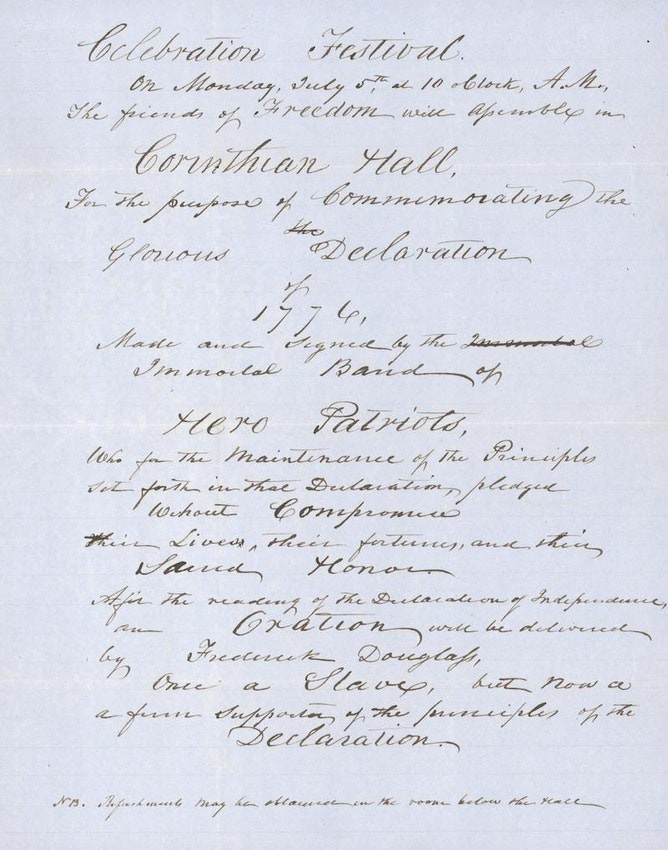 Celebration Festival.
On Monday, July 5th, at 10 oClock, A.M.,
The friends of Freedom will Assemble in
Corinthian Hall,
For the purpose of Commemorating the
the
Glorious Declaration
of
1776,
Made and signed by the Immortal
Immortal Band of
Hero Patriots,
Who for the Maintenance of the Principles
set forth in that Declaration, pledged
Without Compromise
their Lives, their fortunes, and their
Sacred Honor
After the reading of the Declaration of Independence
an Oration will be delivered
by Frederick Douglass,
Once a Slave, but now a
a firm supporter of the principles of the
Declaration.
NB. Refreshments may be obtained in the room below the Hall